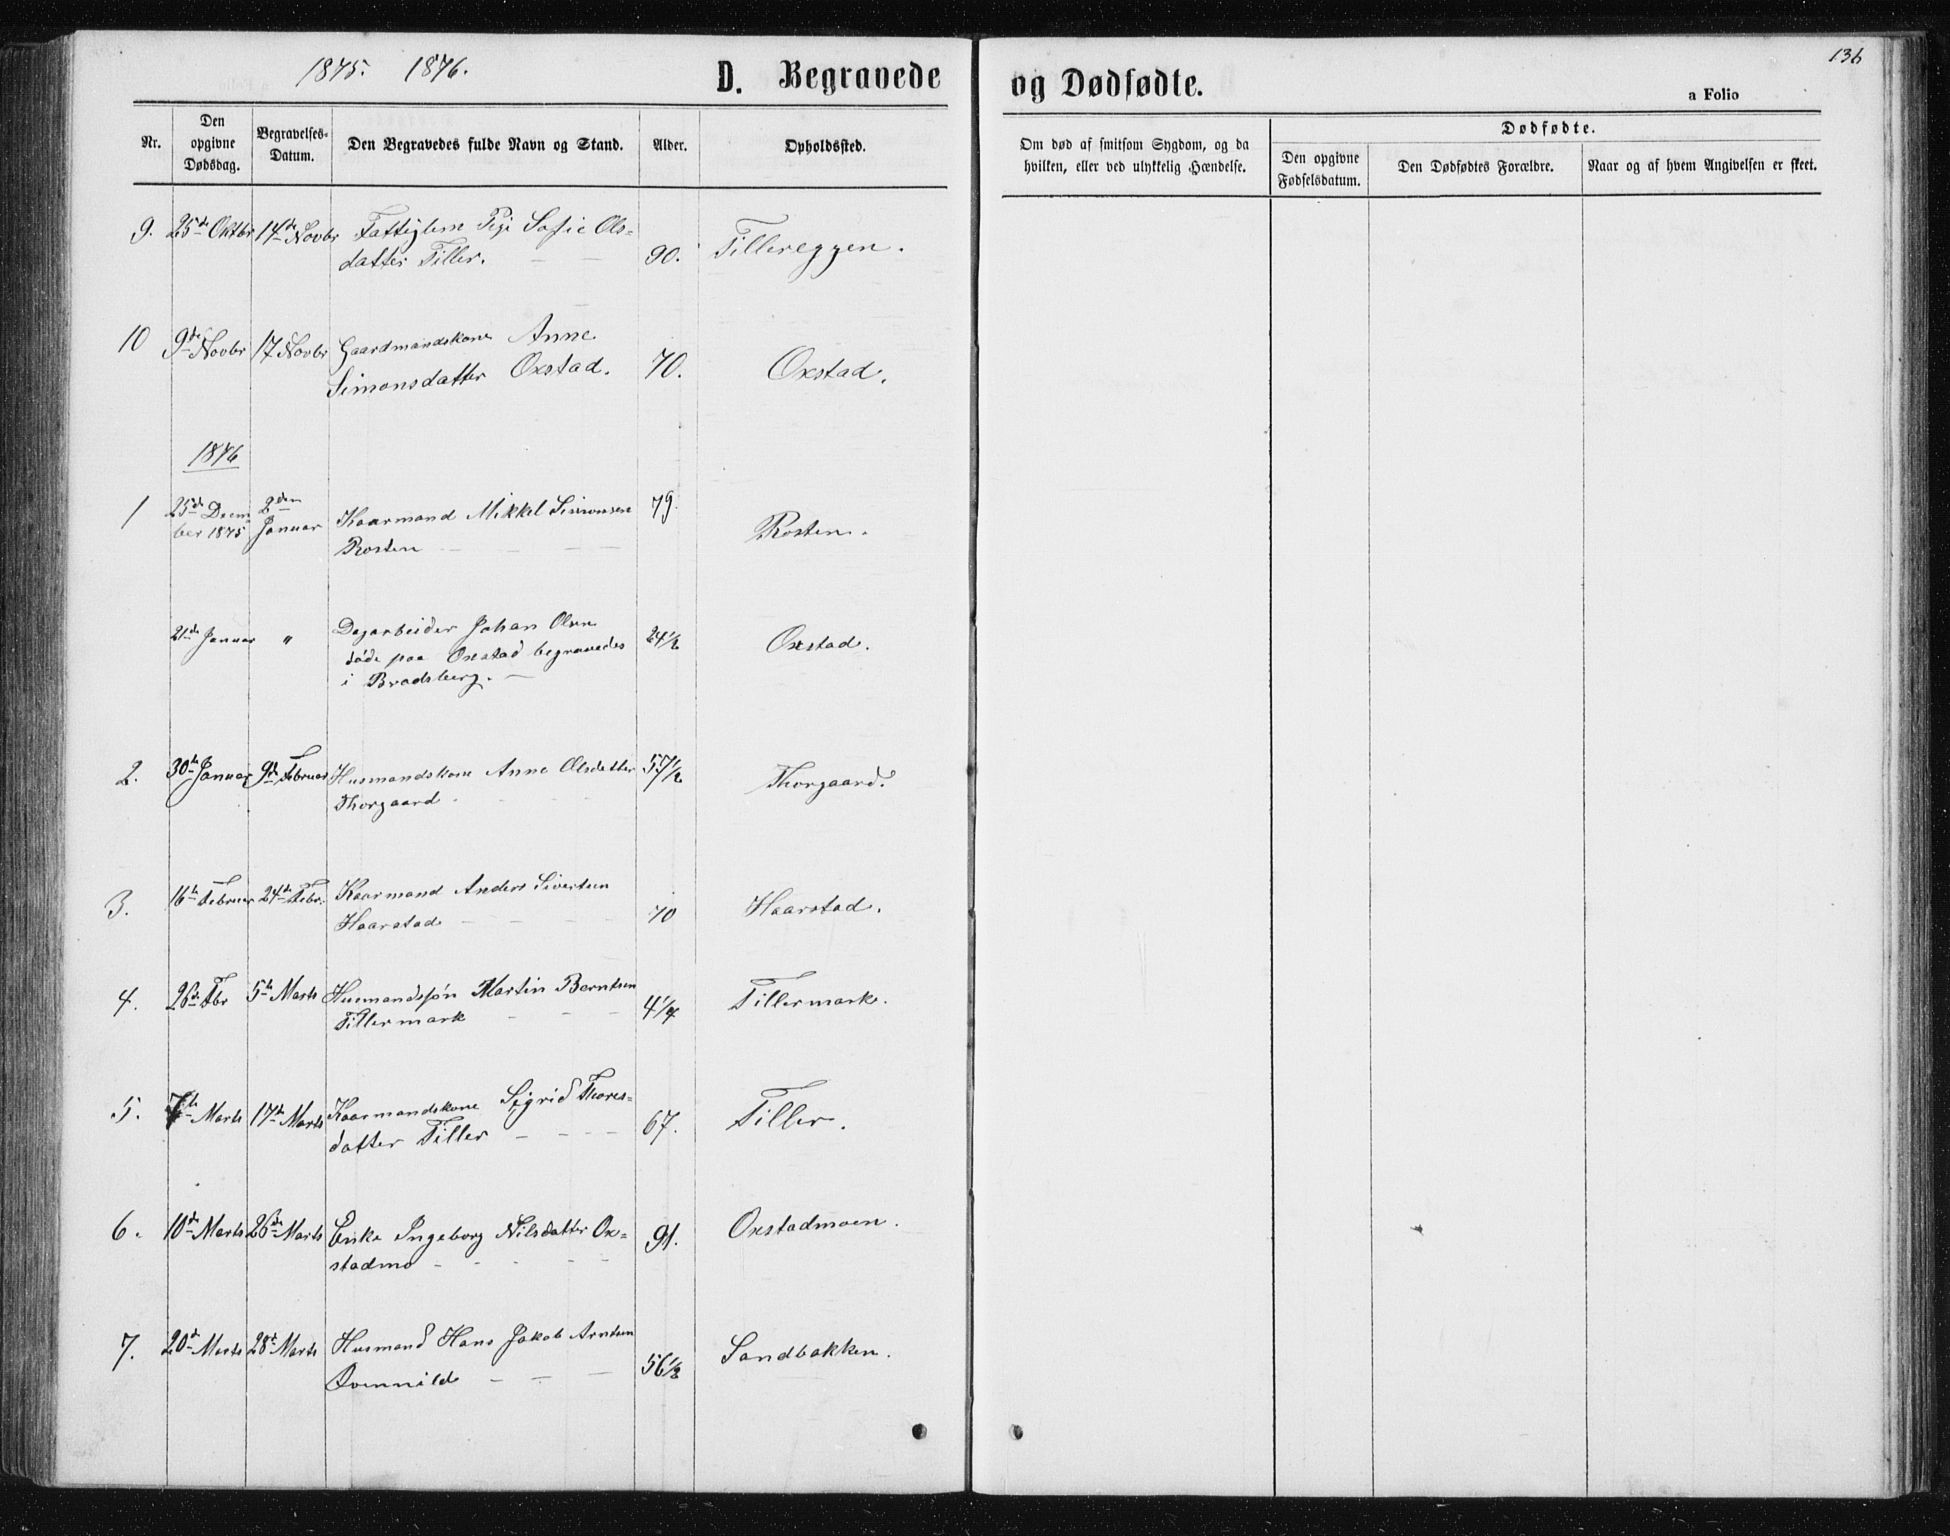 1875. 1876.
D. Begravede
og Dødfødte.
136
a Folio
Nr.
Den opgivne Dødsdag.
Begravelses-Datum.
Den Begravedes fulde Navn og Stand.
Alder.
Opholdssted.
Om død af smitsom Sygdom, og da
hvilken, eller ved ulykkelig Hændelse.
Dødfødte.
Den opgivne Fødselsdatum.
Den Dødfødtes Forældre.
Naar og af hvem Angivelsen er skeet.
9. 25de Oktbr 14de Novbr Fattiglem Pige Sofie Ols-
datter Tiller. 90. Tillereggen.
10 9de Novbr 17 Novbr Gaardmandskone Anne
Simonsdatter Oxstad. 70. Oxstad.
1876
1 25de Decem 2den Kaarmand Mikkel Simonsen 79.
ber 1875 Januar Rosten Rosten.
21de Januar " Dagarbeider Johan Olsen 24 1/2 Oxstad.
døde paa Oxstad begravedes
i Bradsberg.
2. 30te Januar 9de Februar Husmandskone Anne Olsdatter 57 1/2
Thorgaard Thorgaard.
3. 16de Februar 24de Febr. Kaarmand Anders Sivertsen
Haarstad 70 Haarstad.
4. 26de Fbr 5te Marts Husmandssøn Martin Berntsen
Tillermark 4 1/4 Tillermark.
5. 7de Marts 17de Marts Kaarmandskone Sigrid Thores-
datter Tiller 67. Tiller.
6. 10de Marts 26de Marts Enke Ingeborg Nilsdatter Ox-
stadmo 91. Oxstadmoen.
7. 20de Marts 28de Marts Husmand Hans Jakob Arntsen
Kvennild 56 1/2 Sandbakken.